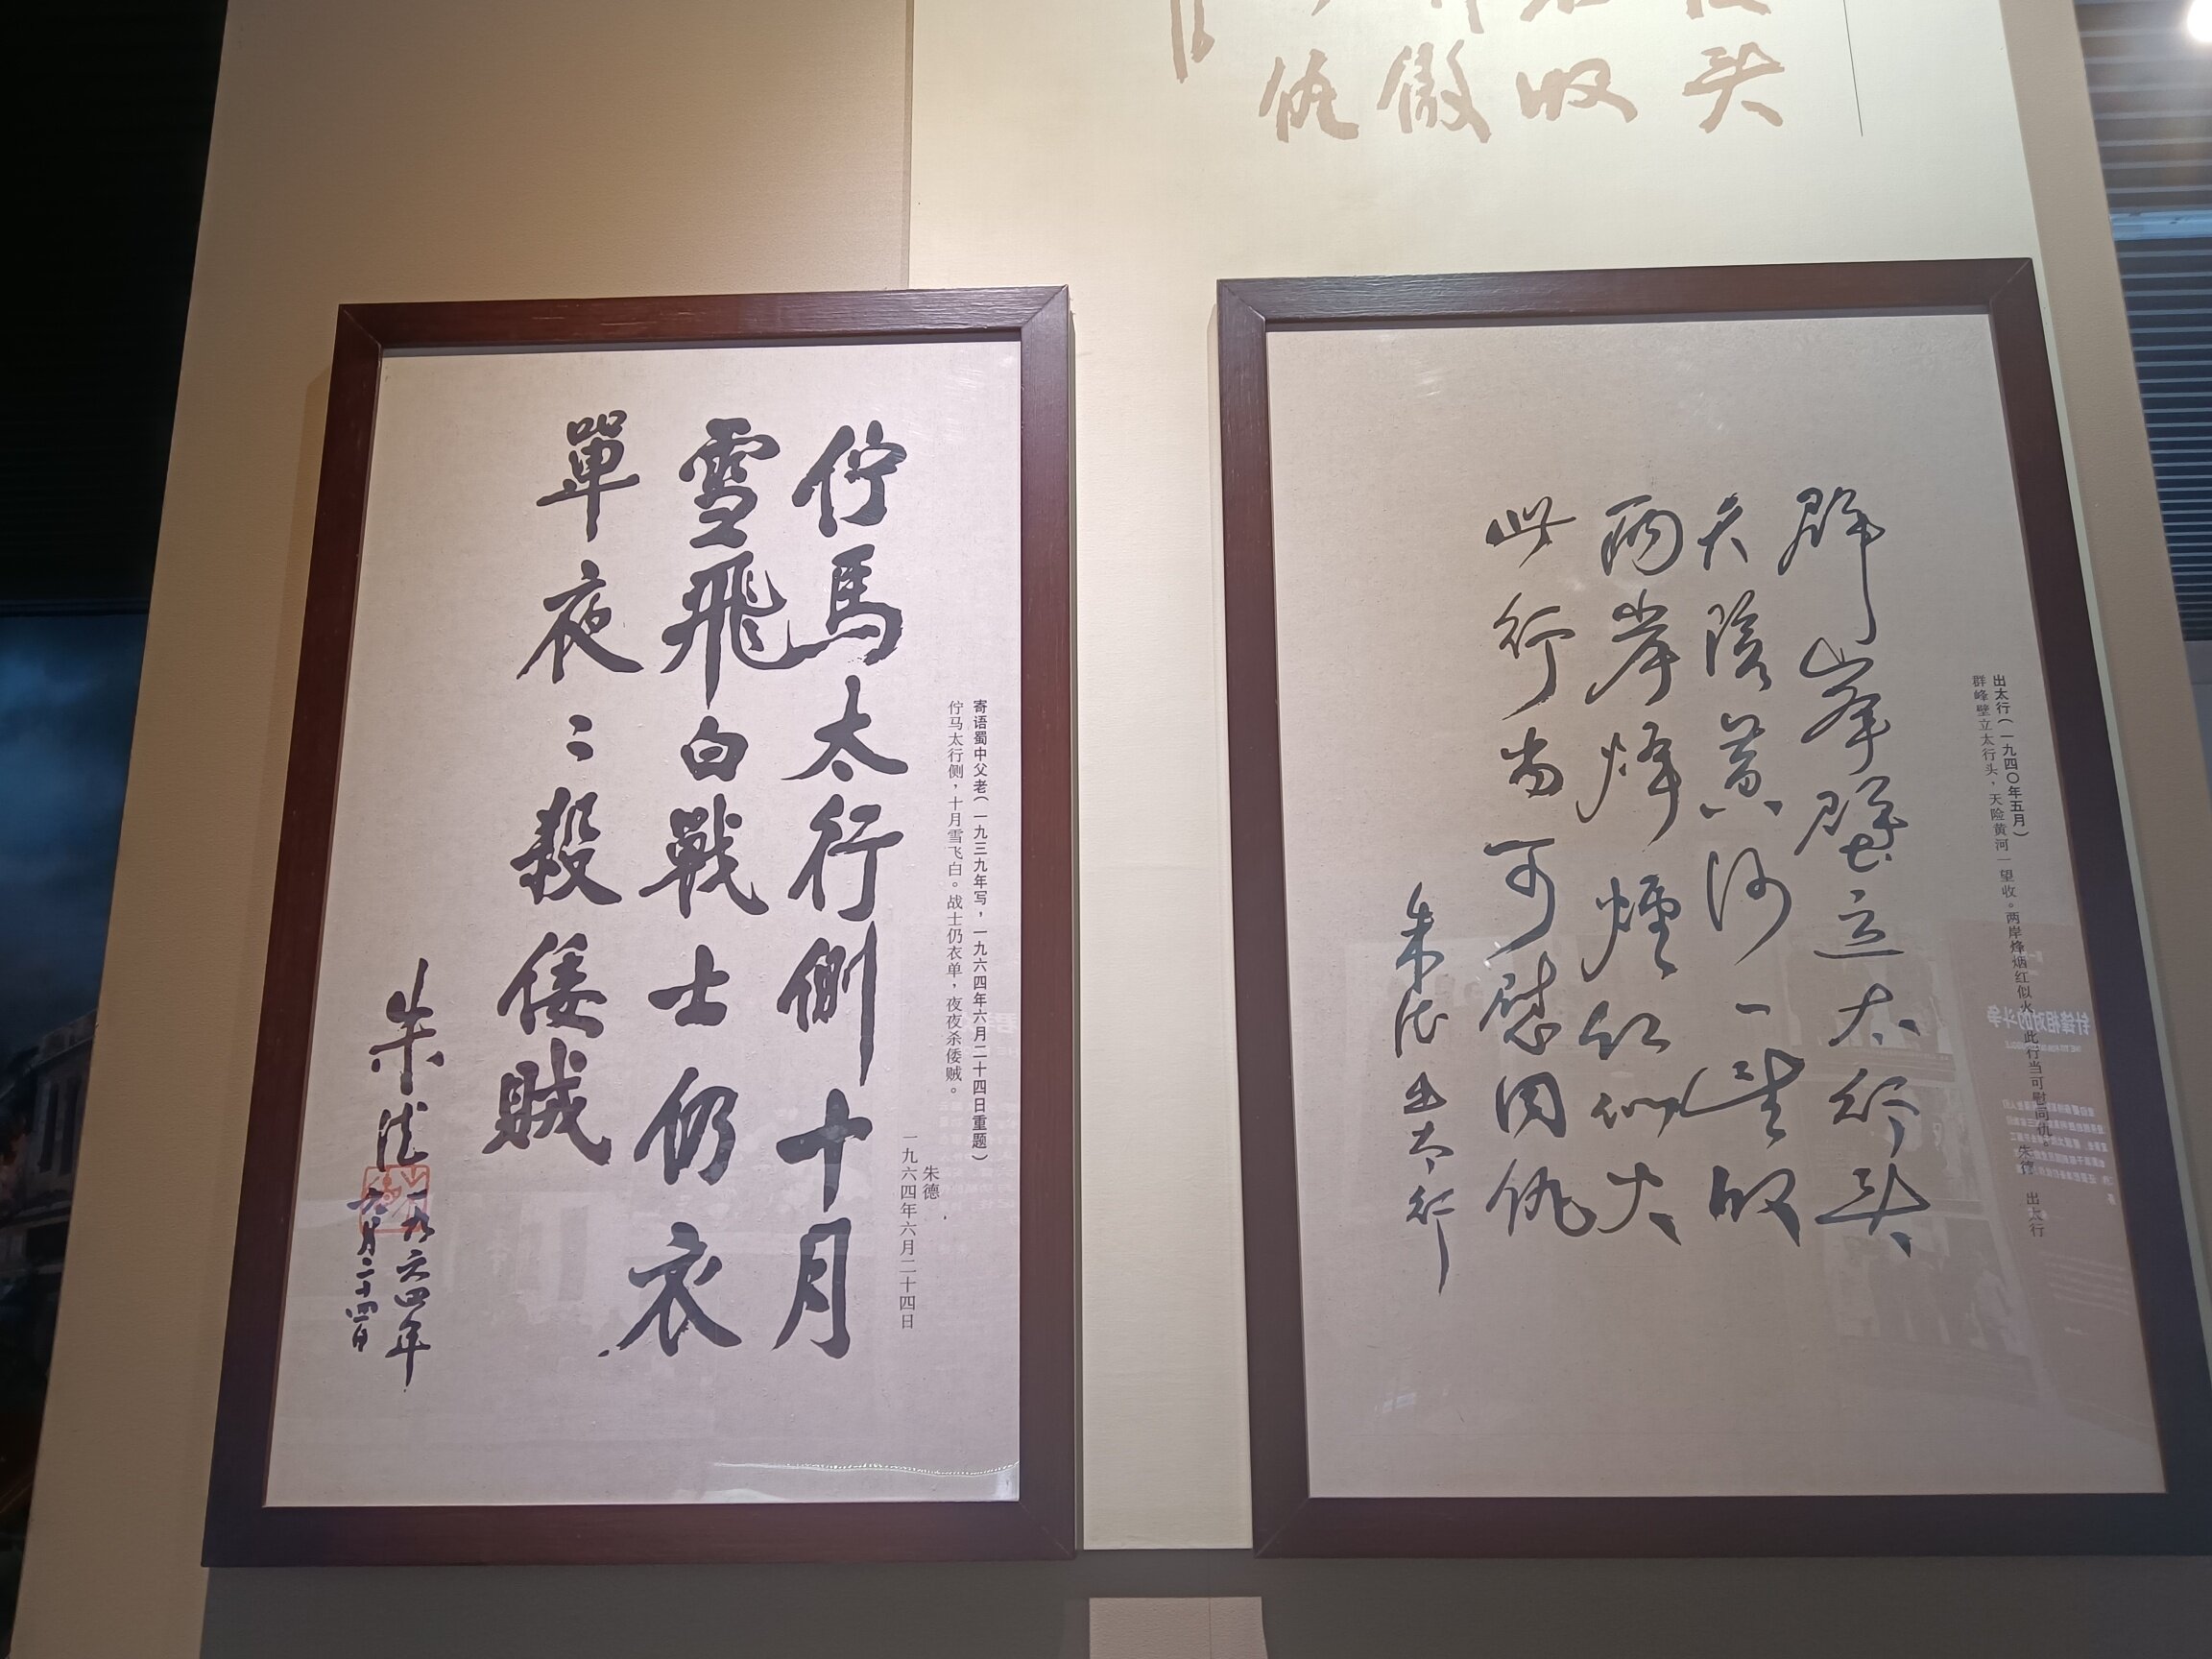 头
收
傲
仇
出太行（一九四〇年五月）
群峰壁立太行头，天险黄河一望收。两岸烽烟红似火，此行当可慰同仇。
朱德 出太行
群峯壁立太行头
天险黄河一望收
两岸烽煙红似火
此行当可慰同仇
朱德出太行
寄语蜀中父老（一九三九年写，一九六四年六月二十四日重题）
伫马太行侧，十月雪飞白。战士仍衣单，夜夜杀倭贼。
朱德
一九六四年六月二十四日
佇馬太行側十月
雪飛白戰士仍衣
單夜〻殺倭賊
朱德
一九六四年
六月二十四日